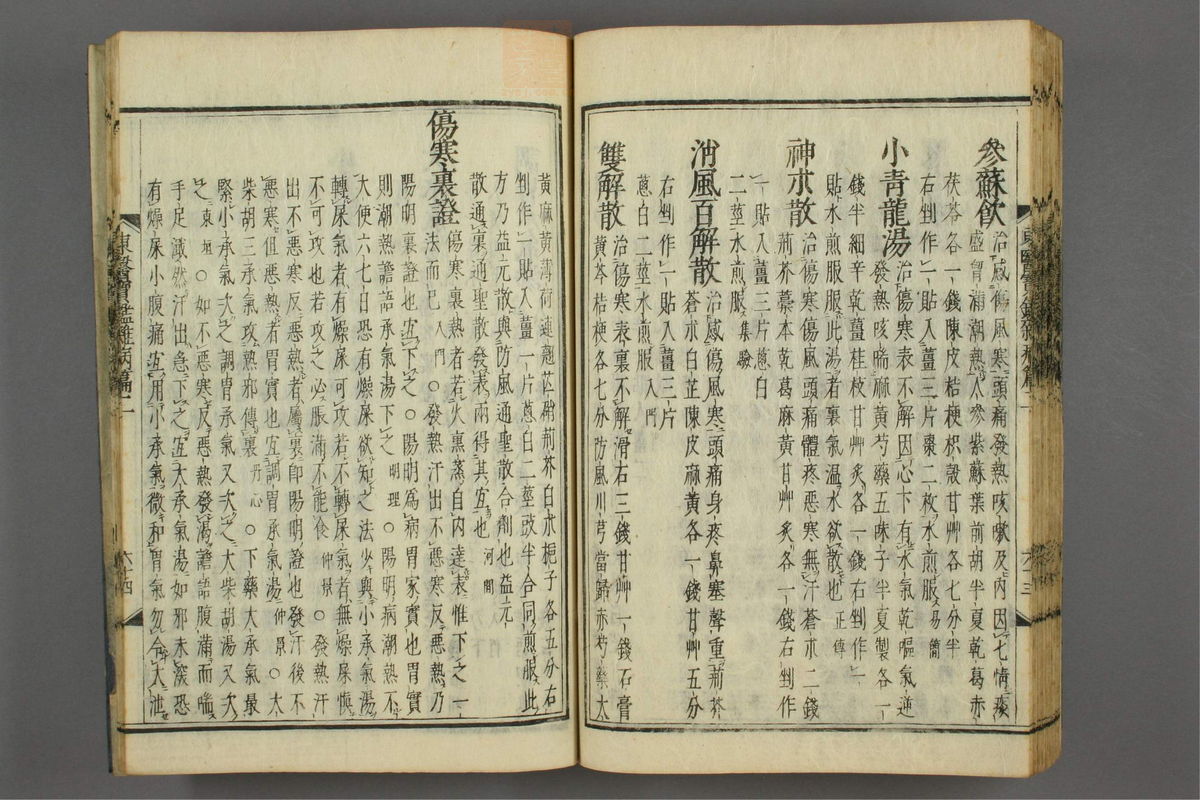 參蘇飮
治感傷風寒頭痛發熱咳嗽及內因七情痰
盛胷滿潮熱人參紫蘇葉前胡半夏乾葛赤
茯苓各一錢陳皮桔梗枳殼甘艸各七分半
右剉作一貼入薑三片棗二枚水煎服易簡
小靑龍湯
治傷寒表不解因心下有水氣乾嘔氣逆
發熱咳喘麻黃芍藥五味子半夏製各一
錢半細辛乾薑桂枝甘艸炙各一錢右剉作一
貼水煎服服此湯者裏氣溫水欲散也正傳
神朮散
治傷寒傷風頭痛體疼惡寒無汗蒼朮二錢
荊芥藁本乾葛麻黃甘艸炙各一錢右剉作
一貼入薑三片葱白
二莖水煎服集驗
消風百解散
治感傷風寒頭痛身疼鼻塞聲重荊芥
蒼朮白芷陳皮麻黃各一錢甘艸五分
右剉作一貼入薑三片
葱白二莖水煎服入門
雙解散
治傷寒表裏不解滑石三錢甘艸一錢石膏
黃芩桔梗各七分防風川芎當歸赤芍藥大
東醫寶鑑雜病篇二
六三
黃麻黃薄荷連翹芒硝荊芥白朮梔子各五分右
剉作一貼入薑三片葱白二莖豉半合同煎服此
方乃益元散與防風通聖散合劑也益元
散通裏通聖散發表兩得其宜也河間
傷寒裏證
傷寒裏熱者若火熏蒸自內達表惟下之一
法而已入門○發熱汗出不惡寒反惡熱乃
陽明裏證也宜下之○陽明爲病胃家實也胃實
則潮熱譫語承氣湯下之明理○陽明病潮熱不
大便六七日恐有燥屎欲知之法少與小承氣湯
轉屎氣者有燥屎可攻若不轉屎氣者無燥屎愼
不可攻也若攻之必脹滿不能食仲景○發熱汗
出不惡寒反惡熱者屬裏卽陽明證也發汗後不
惡寒但惡熱者胃實也宜調胃承氣湯仲景○大
柴胡三承氣攻熱邪傳裏丹心○下藥大承氣最
緊小承氣次之調胃承氣又次之大柴胡湯又次
之東垣○如不惡寒反惡熱發渴譫語腹滿而喘
手足濈然汗出急下之宜大承氣湯如邪未深恐
有燥屎小腹痛宜用小承氣微和胃氣勿令大泄
東醫寶鑑雜病篇二
六四